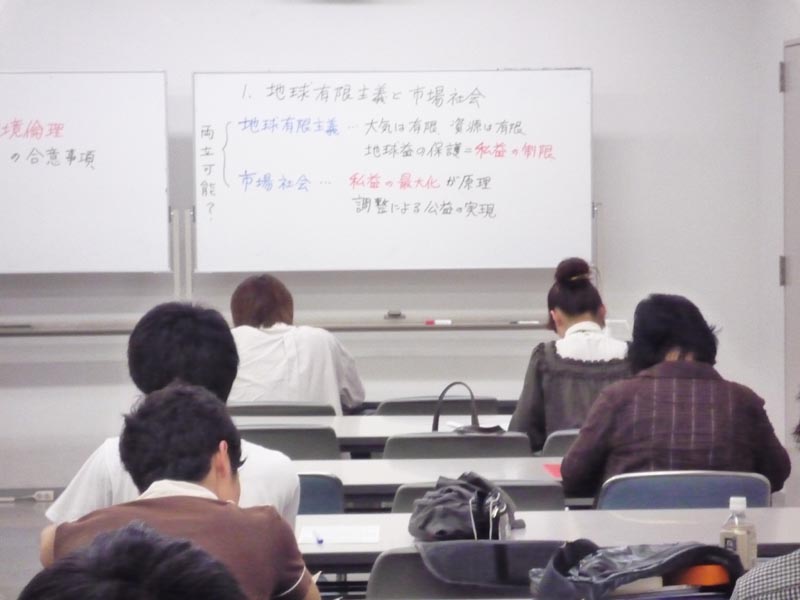 境倫理
の合意事項
1. 地球有限主義と市場社会
両立可能?
地球有限主義 … 大気は有限、資源は有限
地球益の保護=私益の制限
市場社会 … 私益の最大化が原理
調整による公益の実現